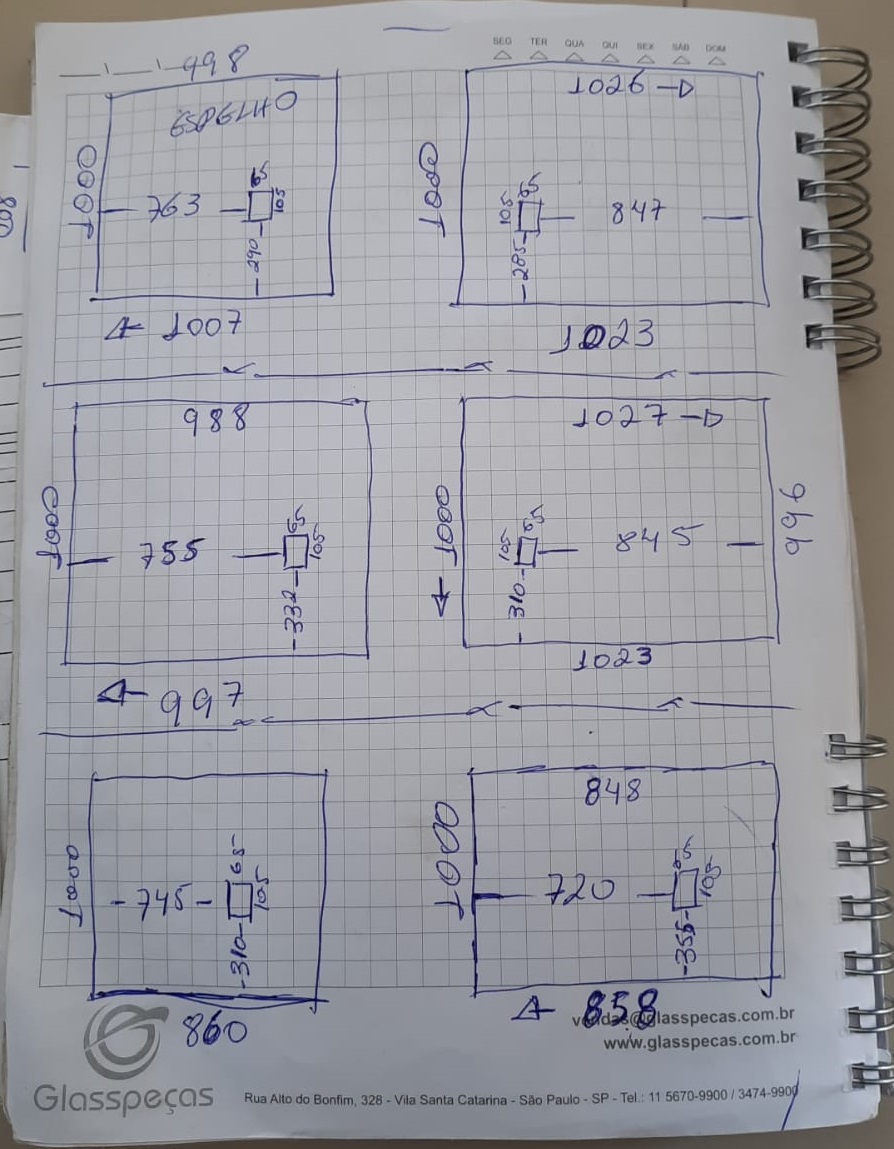 SEG TER QUA QUI SEX SAB DOM
998
ESPELHO
1000
763
65
105
290
1007
1026
1000
105
65
847
285
1023
988
1000
755
65
105
332
997
1027
1000
105
65
845
996
310
1023
1000
745
65
105
310
860
848
1000
720
65
105
355
858
vendas@glasspecas.com.br
www.glasspecas.com.br
Glasspeças
Rua Alto do Bonfim, 328 - Vila Santa Catarina - São Paulo - SP - Tel.: 11 5670-9900 / 3474-9900